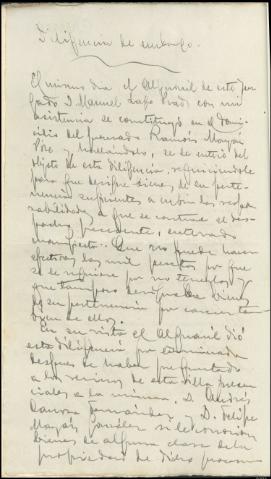 Diligencia de embargo.
El mismo día el Alguacil de este Juz
gado D. Manuel Lafo Prado con mi
asistencia se constituyó en el domi
cilio del procesado Ramón Mayán
Rey y hallándole, se le enteró del
objeto de esta diligencia, requiriéndole
para que designe bienes de su perte
nencia suficientes a cubrir las respon
sabilidades a que se contrae el des
pacho precedente, enterado
manifestó: Que no puede hacer
efectivas las mil pesetas por que
se le requiere por no tenerlas y
que tampoco designa bienes
de su pertenencia por carecer tam
bién de ellos.
En su vista el Alguacil dió
esta diligencia por terminada
después de haber preguntado
a los vecinos de esta villa presen
ciales a la misma, D. Andrés
Fernández y D. Felipe
Mayán González si le conocían
bienes de alguna clase de la
propiedad de dicho procesa